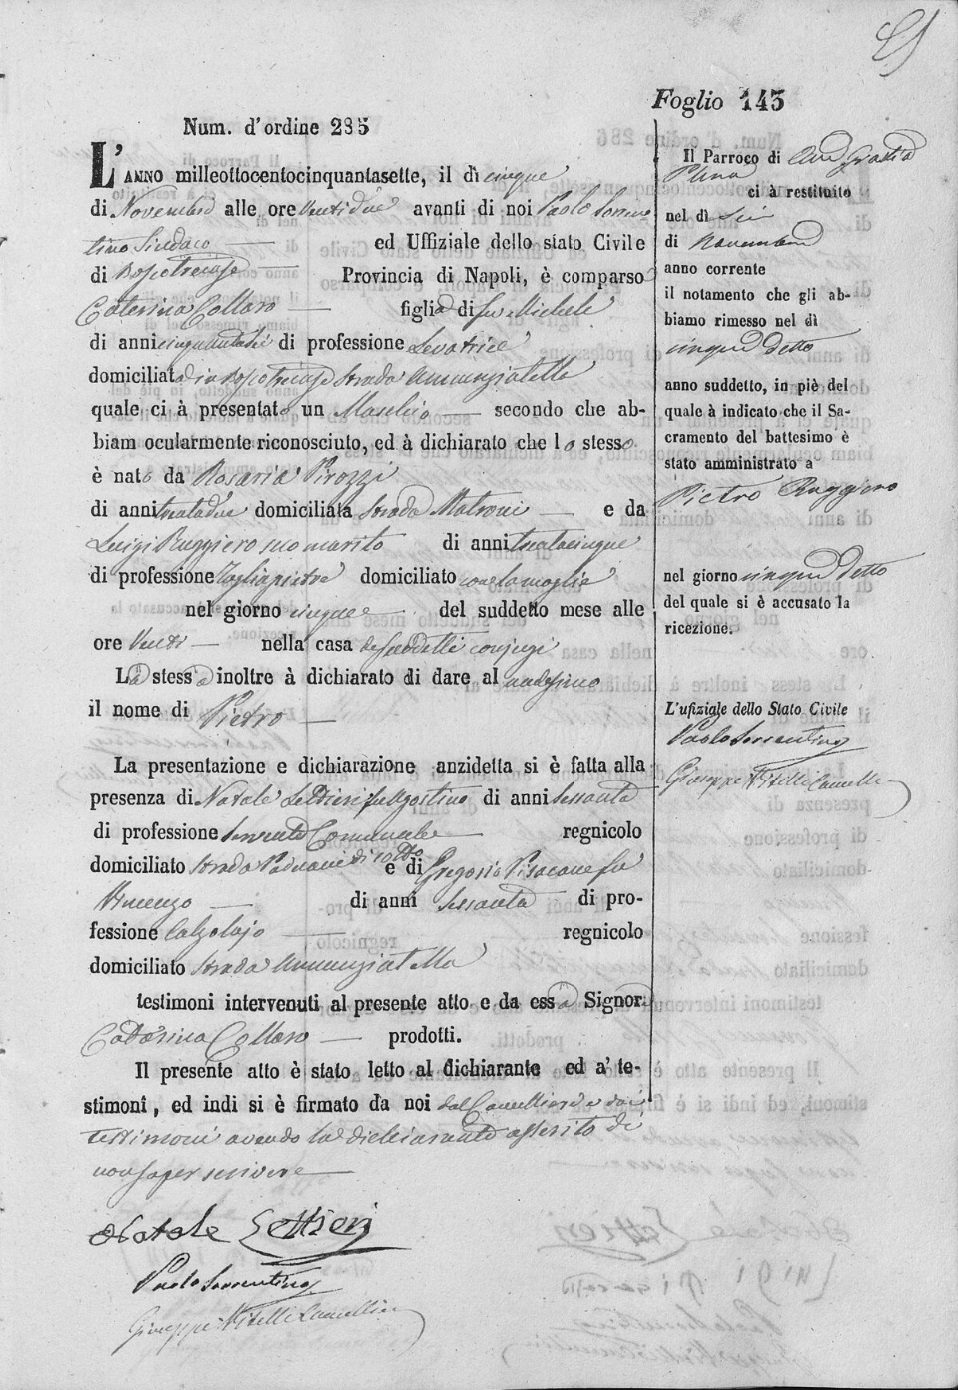 Foglio 143
Num. d'ordine 285
L'ANNO milleottocentocinquantasette, il dì cinque
di Novembre alle ore Ventidue avanti di noi Paolo Sorren
tino Sindaco ed Uffiziale dello stato Civile
di Boscotrecase Provincia di Napoli, è comparso
Caterina Collaro figlia di fu Michele
di anni di professione Levatrice
domiciliata in Boscotrecase Strada Annunziatella
quale ci à presentato un Maschio secondo che ab-
biam ocularmente riconosciuto, ed à dichiarato che lo stesso
è nato da Rosaria Pirozzi
di anni trentadue domiciliata Strada Matroni e da
Luigi Ruggiero suo marito di anni trentacinque
di professione Tagliapietre domiciliato con la moglie
nel giorno cinque del suddetto mese alle
ore Venti nella casa de suddetti conjugi
La stessa inoltre à dichiarato di dare al medesimo
il nome di Pietro
La presentazione e dichiarazione anzidetta si è fatta alla
presenza di Natale Settieri fu Agostino di anni Sessanta
di professione Servente Comunale regnicolo
domiciliato Strada Padnani di sotto e di Gregorio Pisacane fu
Vincenzo di anni Sessanta di pro-
fessione Calzolajo regnicolo
domiciliato Strada Annunziatella
testimoni intervenuti al presente atto e da essa Signora
Caterina Collaro prodotti.
Il presente atto è stato letto al dichiarante ed a' te-
stimoni, ed indi si è firmato da noi dal Cancelliere e dai
testimoni avendo la dichiarante asserito di
non saper scrivere
Natale Settieri
Paolo Sorrentino
Giuseppe Vitelli Cancelliere
Il Parroco di Ave Gratia
Plena
ci à restituito
nel dì Sei
di Novembre
anno corrente
il notamento che gli ab-
biamo rimesso nel dì
cinque detto
anno suddetto, in piè del
quale à indicato che il Sa-
cramento del battesimo è
stato amministrato a
Pietro Ruggiero
nel giorno cinque detto
del quale si è accusato la
ricezione.
L'ufiziale dello Stato Civile
Paolo Sorrentino
Giuseppe Vitelli Cancelliere